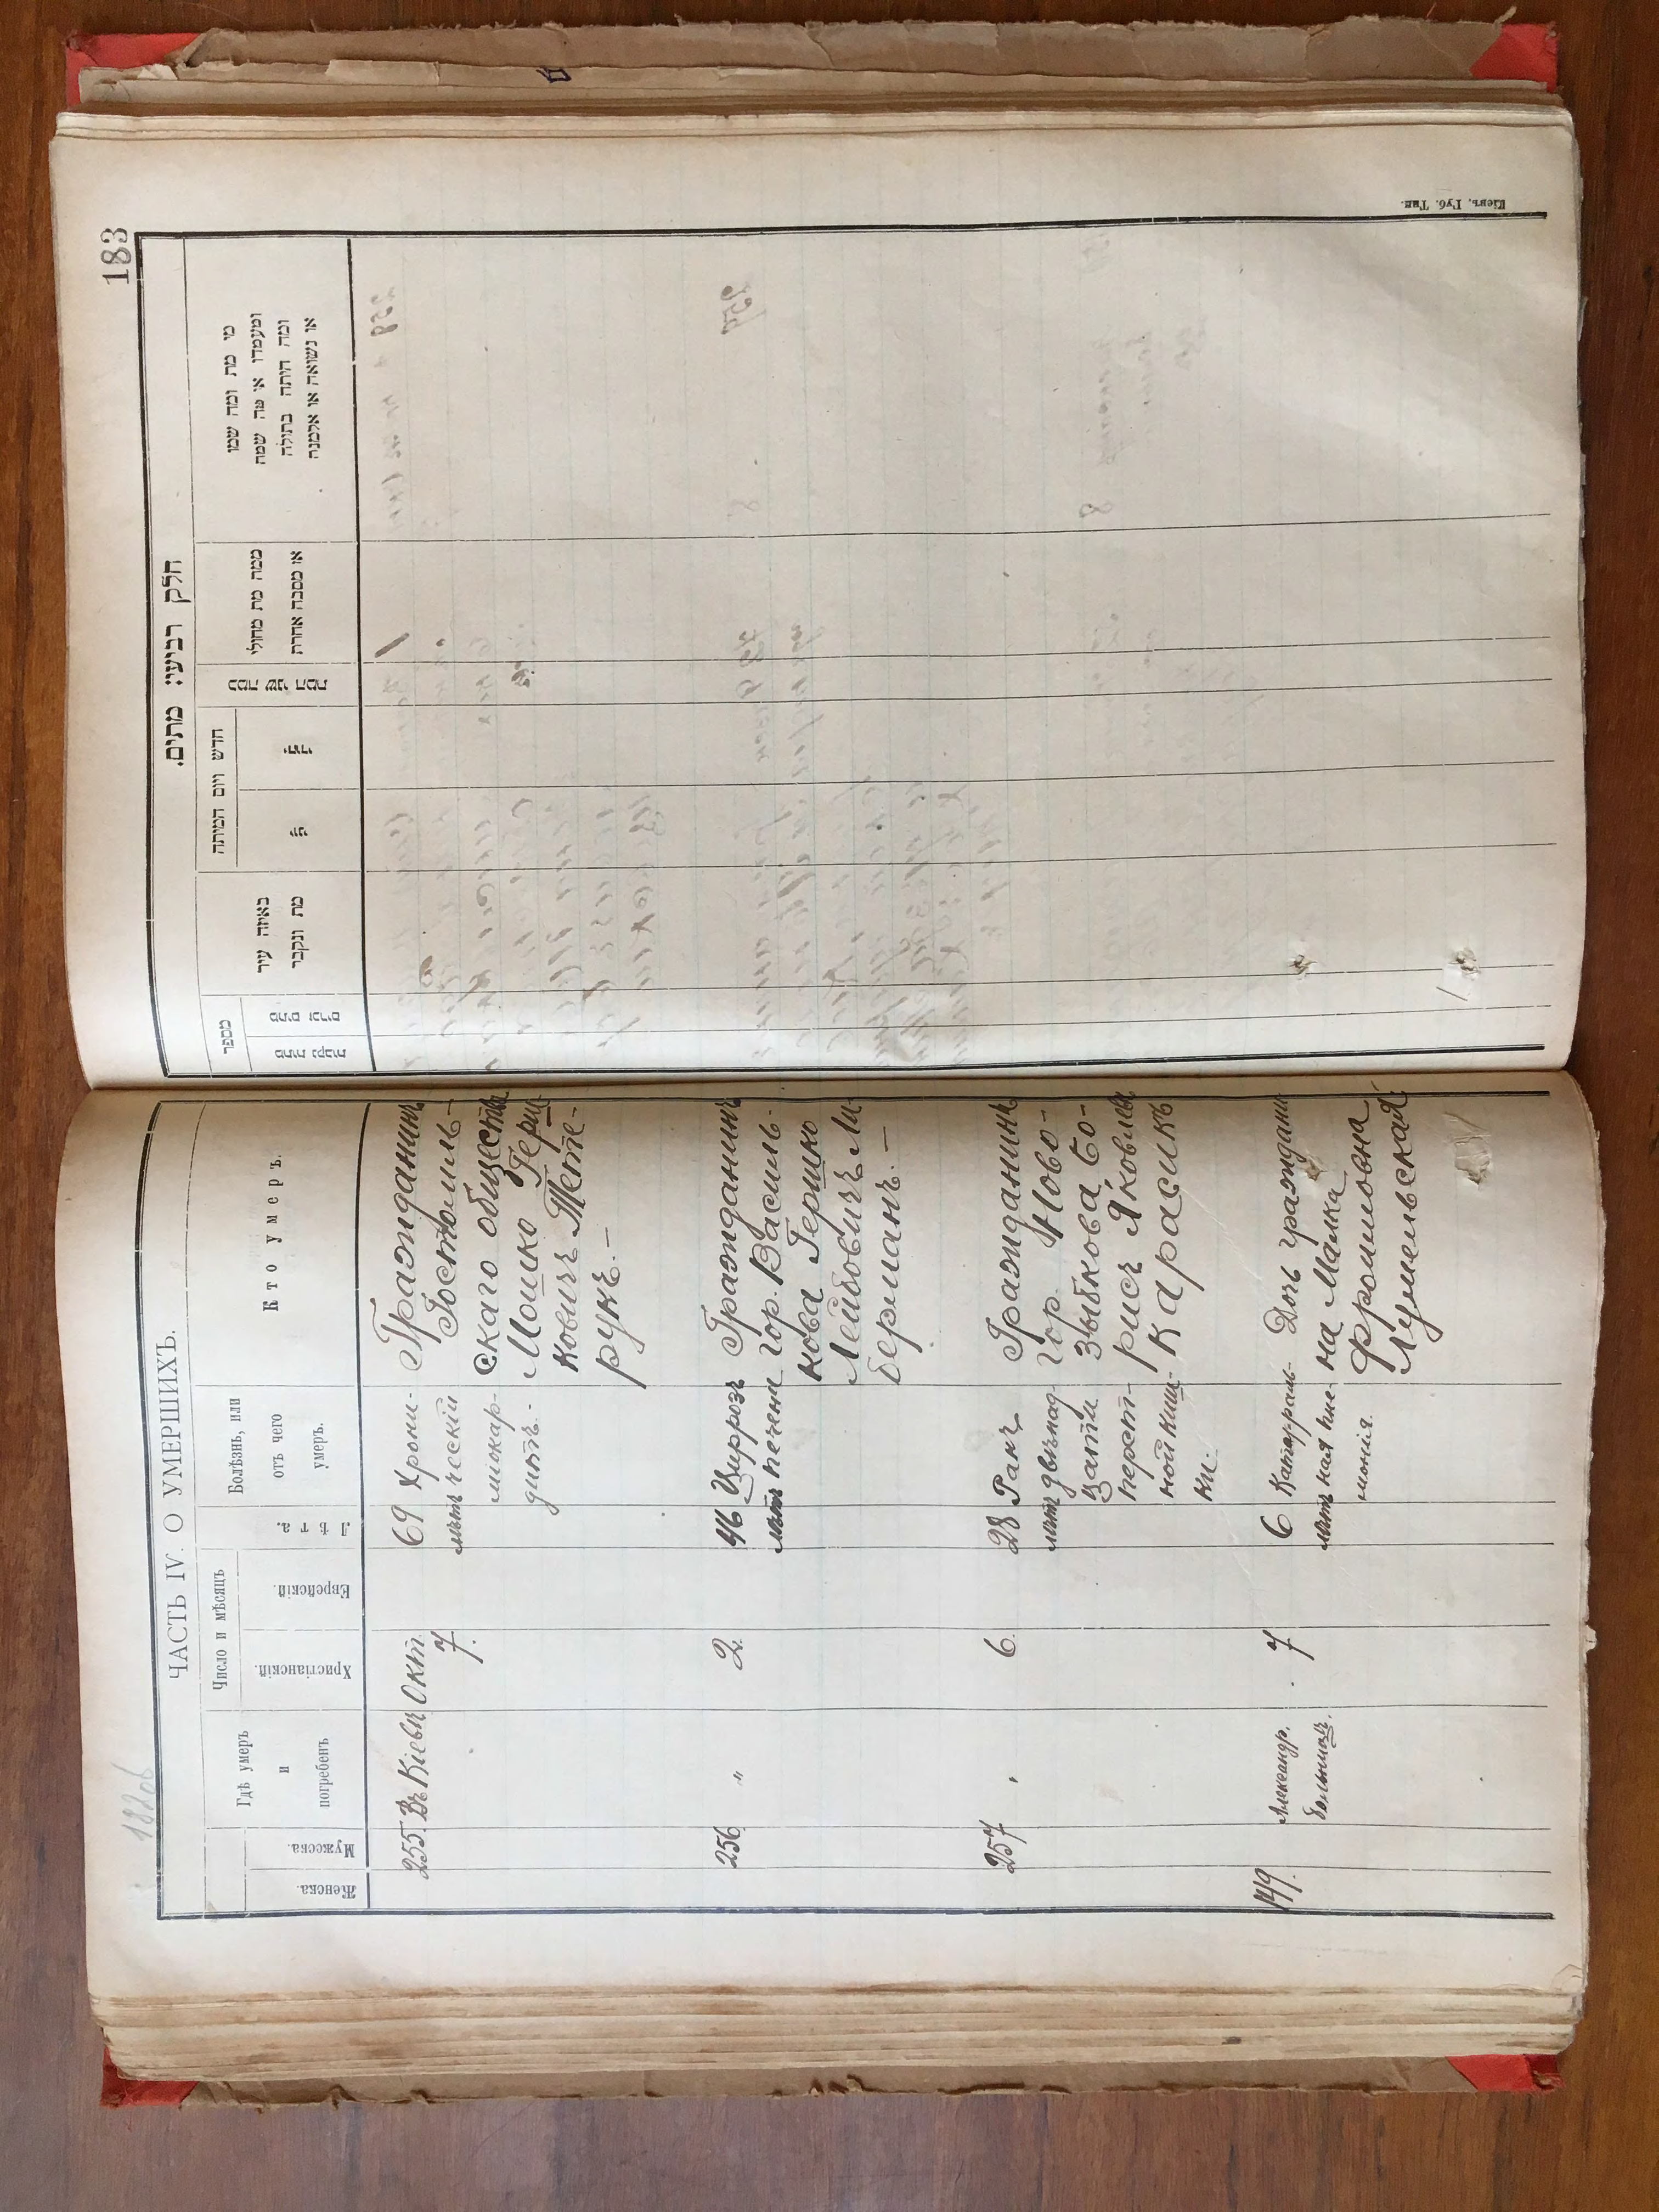 182об
ЧАСТЬ IV. О УМЕРШИХЪ.
Женска.
Мужеска.
Гдѣ умеръ
и
погребенъ
Число и мѣсяцъ
Христіанскій.
Еврейскій.
Лѣта.
Болѣзнь, или
отъ чего
умеръ.
Кто умеръ.
255. Въ Кіевѣ Окт. 7. 69 лѣтъ
Хрони-
ческій
міокар-
дитъ.-
Гражданинъ
Гостомль-
скаго общества
Мошко Герш-
ковичъ Тете-
рукъ.-
256 " 2. 46 лѣтъ
Цирроз
печени
Гражданинъ
гор. Василь-
кова Гершко
Лейбовичъ Ли-
берманъ.-
257 " 6. 28 лѣтъ
Ракъ
двѣнад-
цати
перст-
ной киш-
ки.
Гражданинъ
гор. Ново-
зыбкова Бо-
рисъ Яковлевъ
Карасикъ
149. Александр.
больница. 7 6 лѣтъ
Катарраль-
ная пне-
монія.
Дочь граждани-
на Малка
Фроимовна
183
חלק רביעי: מתים.
מספר
מתים נקבות
מתים זכרים
באיזה עיר
מת ונקבר
חדש ויום המיתה
כמה שני המת
ממה מת מחולי
או מסבה אחרת
מי מת ומה שמו
ומעמדו או מה שמה
ומה היתה בתולה
או נשואה או אלמנה
Кіевъ, Губ. Тип.